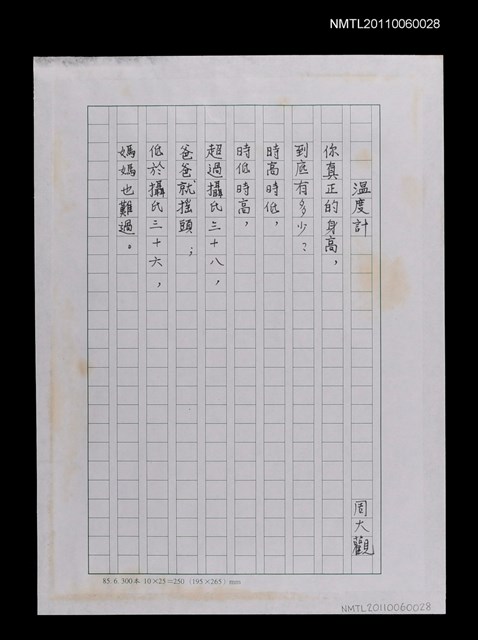 NMTL20110060028
溫度計
周大觀
你真正的身高，
到底有多少？
時高時低，
時低時高，
超過攝氏三十八，
爸爸就搖頭；
低於攝氏三十六，
媽媽也難過。
85. 6. 300本 10×25=250 (195×265) mm
NMTL20110060028